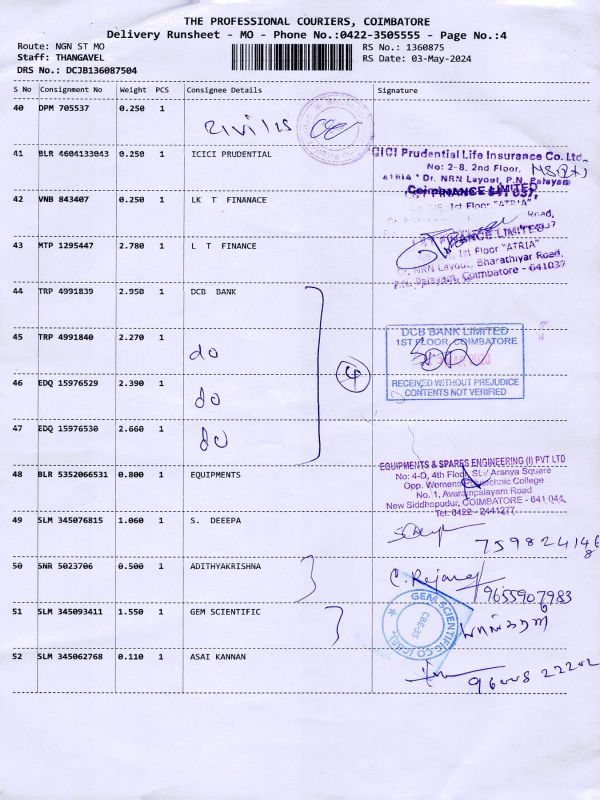 THE PROFESSIONAL COURIERS, COIMBATORE
Delivery Runsheet - MO - Phone No.:0422-3505555 - Page No.:4
Route: NGN ST MO
RS No.: 1360875
Staff: THANGAVEL
RS Date: 03-May-2024
DRS No.: DCJB136087504
S No Consignment No Weight PCS Consignee Details Signature
40 DPM 705537 0.250 1
41 BLR 4604133043 0.250 1 ICICI PRUDENTIAL
ICICI Prudential Life Insurance Co. Ltd.
No: 2-8, 2nd Floor,
Atria Dr. NRN Layout, P.N. Palayam
Coimbatore 641 037.
FINANCE LIMITED
42 VNB 843407 0.250 1 LK T FINANACE
1st Floor "ATRIA"
Road,
43 MTP 1295447 2.780 1 L T FINANCE
FINANCE LIMITED
1st Floor "ATRIA"
Dr. NRN Layout, Bharathiyar Road,
P.N. Palayam, Coimbatore - 641037
44 TRP 4991839 2.950 1 DCB BANK
45 TRP 4991840 2.270 1 do
DCB BANK LIMITED
1ST FLOOR, COIMBATORE
4
46 EDQ 15976529 2.390 1 do
RECEIVED WITHOUT PREJUDICE
CONTENTS NOT VERIFIED
47 EDQ 15976530 2.660 1 do
48 BLR 5352066531 0.800 1 EQUIPMENTS
EQUIPMENTS & SPARES ENGINEERING (I) PVT LTD
No: 4-D, 4th Floor, SL/ Aranya Square
Opp. Womens Polytechnic College
No. 1, Avarampalayam Road
New Siddhapudur, COIMBATORE - 641 044.
Tel: 0422 - 2441277
49 SLM 345076815 1.060 1 S. DEEEPA
50 SNR 5023706 0.500 1 ADITHYAKRISHNA
9655907983
51 SLM 345093411 1.550 1 GEM SCIENTIFIC
GEM SCIENTIFIC CO (CBE)
CBE-35
52 SLM 345062768 0.110 1 ASAI KANNAN